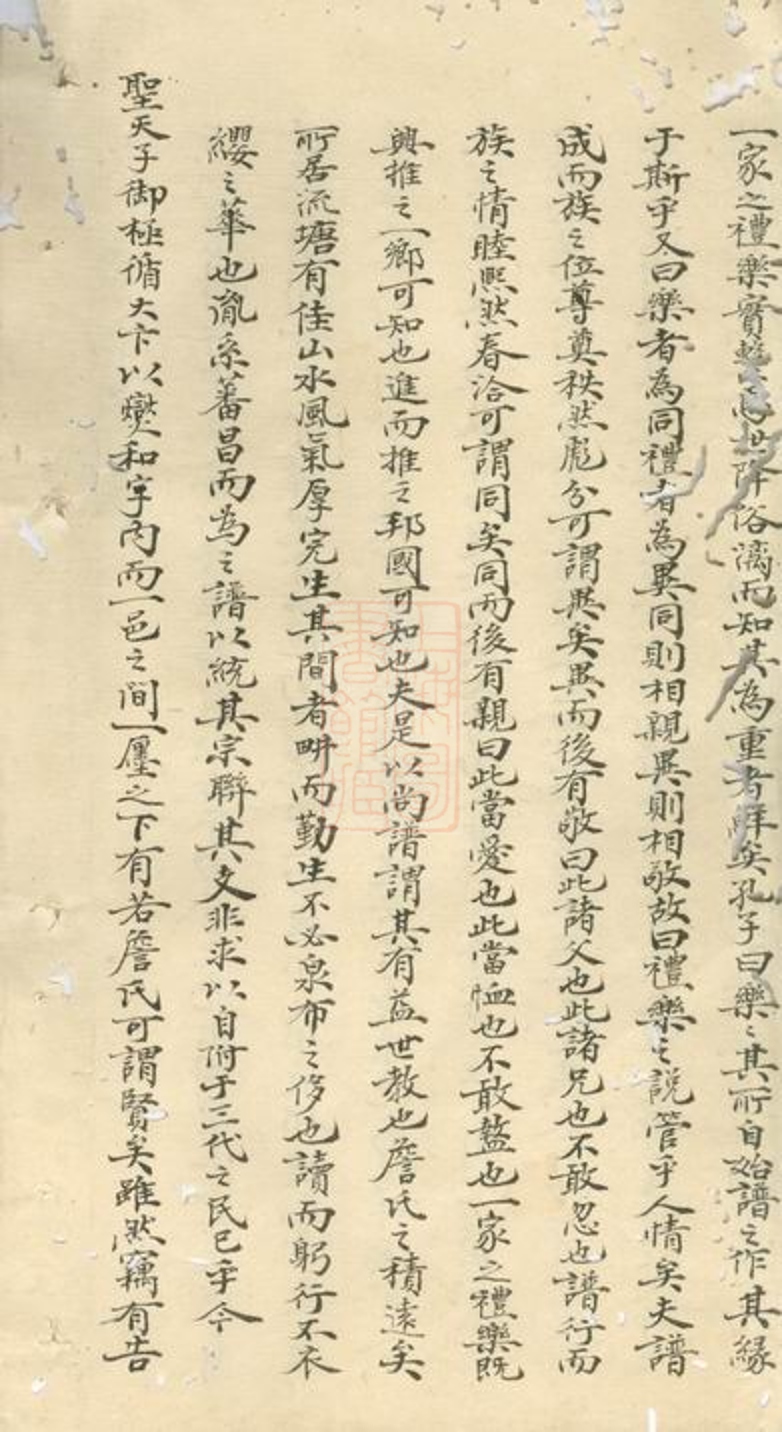 一家之禮樂實整世降俗漓而知其為重者鮮矣孔子曰樂〻其所自始譜之作其緣
于斯乎又曰樂者為同禮者為異同則相親異則相敬故曰禮樂之説管乎人情矣夫譜
成而族之位尊奠秩然彪分可謂異矣異而後有敬曰此諸父也此諸兄也不敢忽也譜行而
族之情睦熈然春洽可謂同矣同而後有親曰此當愛也此當恤也不敢盩也一家之禮樂既
興推之一鄉可知也進而推之邦國可知也夫是以尚譜謂其有益世教也詹氏之積遠矣
所居流塘有佳山水風氣厚完生其間者畊而勤生不必泉布之侈也讀而躬行不衣
纓之華也胤系蕃昌而為之譜以統其宗聯其文非求以自附于三代之民已乎今
聖天子御極循大卞以爕和宇内而一邑之間一廛之下有若詹氏可謂賢矣雖然竊有告